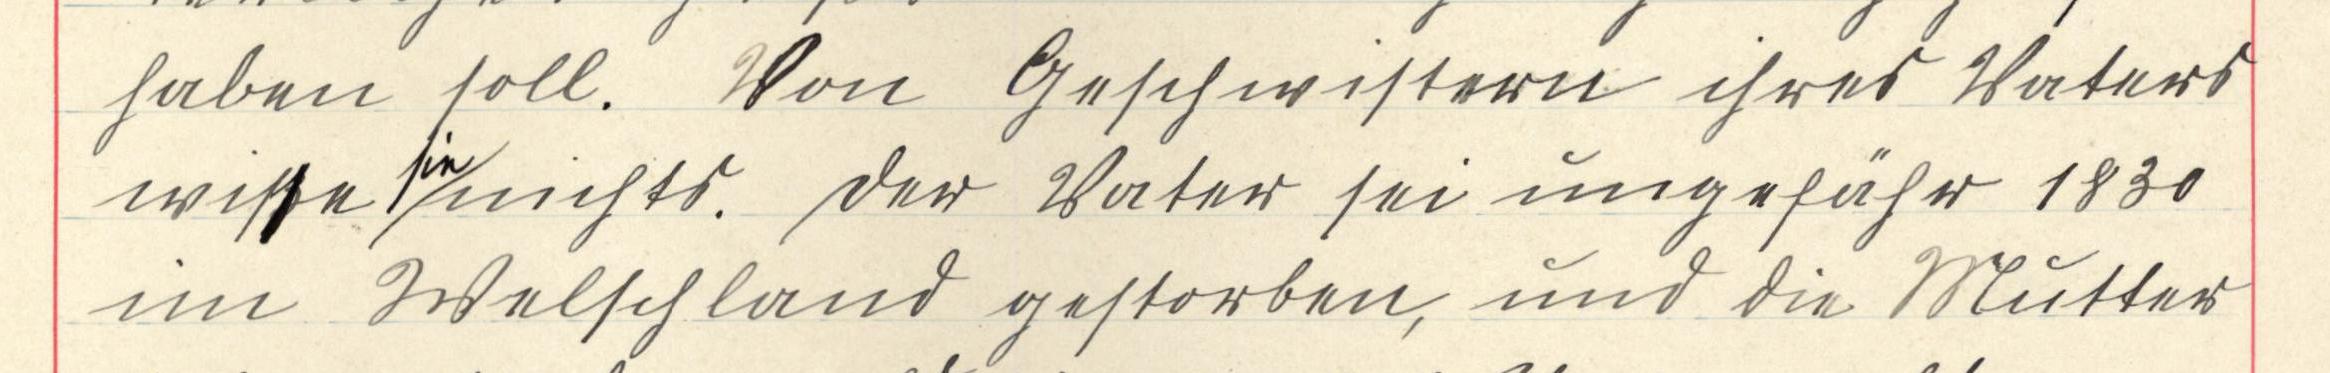 haben soll. Von Geschwistern ihres Vaters
wisse sie nichts. Der Vater sei ungefähr 1830
im Welschland gestorben, und die Mutter